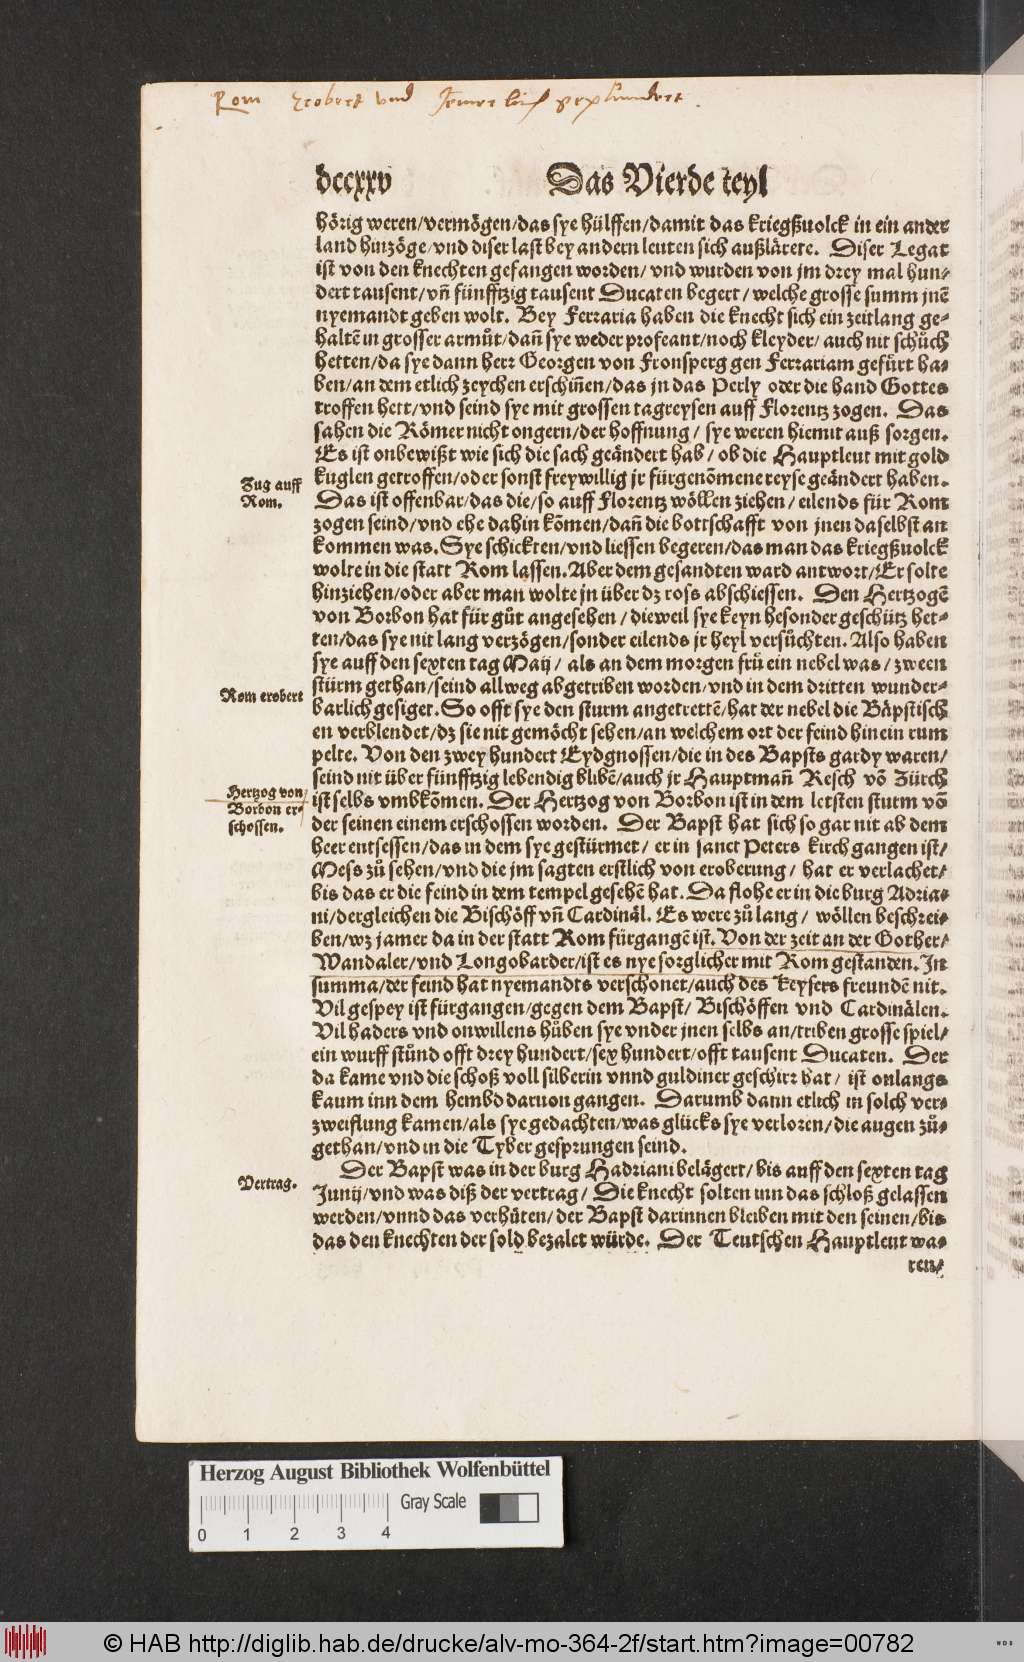 Rom erobert vnd
dccxxv Das Vierde teyl
hörig weren/vermögen/das sye hülffen/damit das kriegßuolck in ein ander
land hinzöge/vnd diser last bey andern leuten sich außlärete. Diser Legat
ist von den knechten gefangen worden/ vnd wurden von jm drey mal hun⸗
dert tausent/vñ fünfftzig tausent Ducaten begert/ welche grosse summ jnẽ
nyemandt geben wolt. Bey Ferraria haben die knecht sich ein zeitlang ge⸗
haltẽ in grosser armůt/dañ sye weder profeant/noch kleyder/ auch nit schůch
hetten/da sye dann herr Georgen von Fronsperg gen Ferrariam gefürt ha⸗
ben/an dem etlich zeychen erschiñen/das jn das Perly oder die hand Gottes
troffen hett/vnd seind sye mit grossen tagreysen auff Florentz zogen. Das
sahen die Römer nicht ongern/der hoffnung/ sye weren hiemit auß sorgen.
Es ist onbewißt wie sich die sach geändert hab/ ob die Hauptleut mit gold
kuglen getroffen/oder sonst freywillig jr fürgenõmene reyse geändert haben.
Zug auff
Rom.
Das ist offenbar/das die/so auff Florentz wöllen ziehen/ eilends für Rom
zogen seind/vnd ehe dahin kõmen/dañ die bottschafft von jnen daselbst an
kommen was. Sye schickten/vnd liessen begeren/das man das kriegßuolck
wolte in die statt Rom lassen. Aber dem gesandten ward antwort/Er solte
hinziehen/oder aber man wolte jn über dz ross abschiessen. Den Hertzogẽ
von Borbon hat für gůt angesehen/ dieweil sye keyn besonder geschütz het⸗
ten/das sye nit lang verzögen/sonder eilends jr heyl versůchten. Also haben
sye auff den sexten tag Maij/ als an dem morgen frů ein nebel was/ zween
stürm gethan/seind allweg abgetriben worden/vnd in dem dritten wunder⸗
Rom erobert
barlich gesiget. So offt sye den sturm angetrettẽ/hat der nebel die Bäpstisch
en verblendet/dz sie nit gemöcht sehen/an welchem ort der feind hinein rum
pelte. Von den zwey hundert Eydgnossen/die in des Bapsts gardy waren/
seind nit über fünfftzig lebendig blibẽ/auch jr Hauptmañ Resch võ Zürch
Hertzog von
Borbon er⸗
schossen.
ist selbs vmbkõmen. Der Hertzog von Borbon ist in dem letsten sturm võ
der seinen einem erschossen worden. Der Bapst hat sich so gar nit ab dem
heer entsessen/das in dem sye gestürmet/ er in sanct Peters kirch gangen ist/
Mess zů sehen/vnd die jm sagten erstlich von eroberung/ hat er verlachet/
bis das er die feind in dem tempel gesehẽ hat. Da flohe er in die burg Adria⸗
ni/dergleichen die Bischöff vñ Cardinäl. Es were zů lang/ wöllen beschrei⸗
ben/wz jamer da in der statt Rom fürgangẽ ist. Von der zeit an der Gother/
Wandaler/vnd Longobarder/ist es nye sorglicher mit Rom gestanden. In
summa/der feind hat nyemandts verschonet/auch des keysers freundẽ nit.
Vil gespey ist fürgangen/gegen dem Bapst/ Bischöffen vnd Cardinälen.
Vil haders vnd onwillens hůben sye vnder jnen selbs an/triben grosse spiel/
ein wurff stůnd offt drey hundert/sex hundert/offt tausent Ducaten. Der
da kame vnd die schoß voll silberin vnnd guldiner geschirr hat/ ist onlangs
kaum inn dem hembd daruon gangen. Darumb dann etlich in solch ver⸗
zweiflung kamen/als sye gedachten/was glücks sye verloren/die augen zů⸗
gethan/vnd in die Tyber gesprungen seind.
Vertrag.
Der Bapst was in der burg Hadriani belägert/ bis auff den sexten tag
Junij/vnd was diß der vertrag/ Die knecht solten inn das schloß gelassen
werden/vnnd das verhüten/der Bapst darinnen bleiben mit den seinen/bis
das den knechten der sold bezalet würde. Der Teutschen Hauptleut wa⸗
ren/
Herzog August Bibliothek Wolfenbüttel
Gray Scale
0 1 2 3 4
© HAB http://diglib.hab.de/drucke/alv-mo-364-2f/start.htm?image=00782